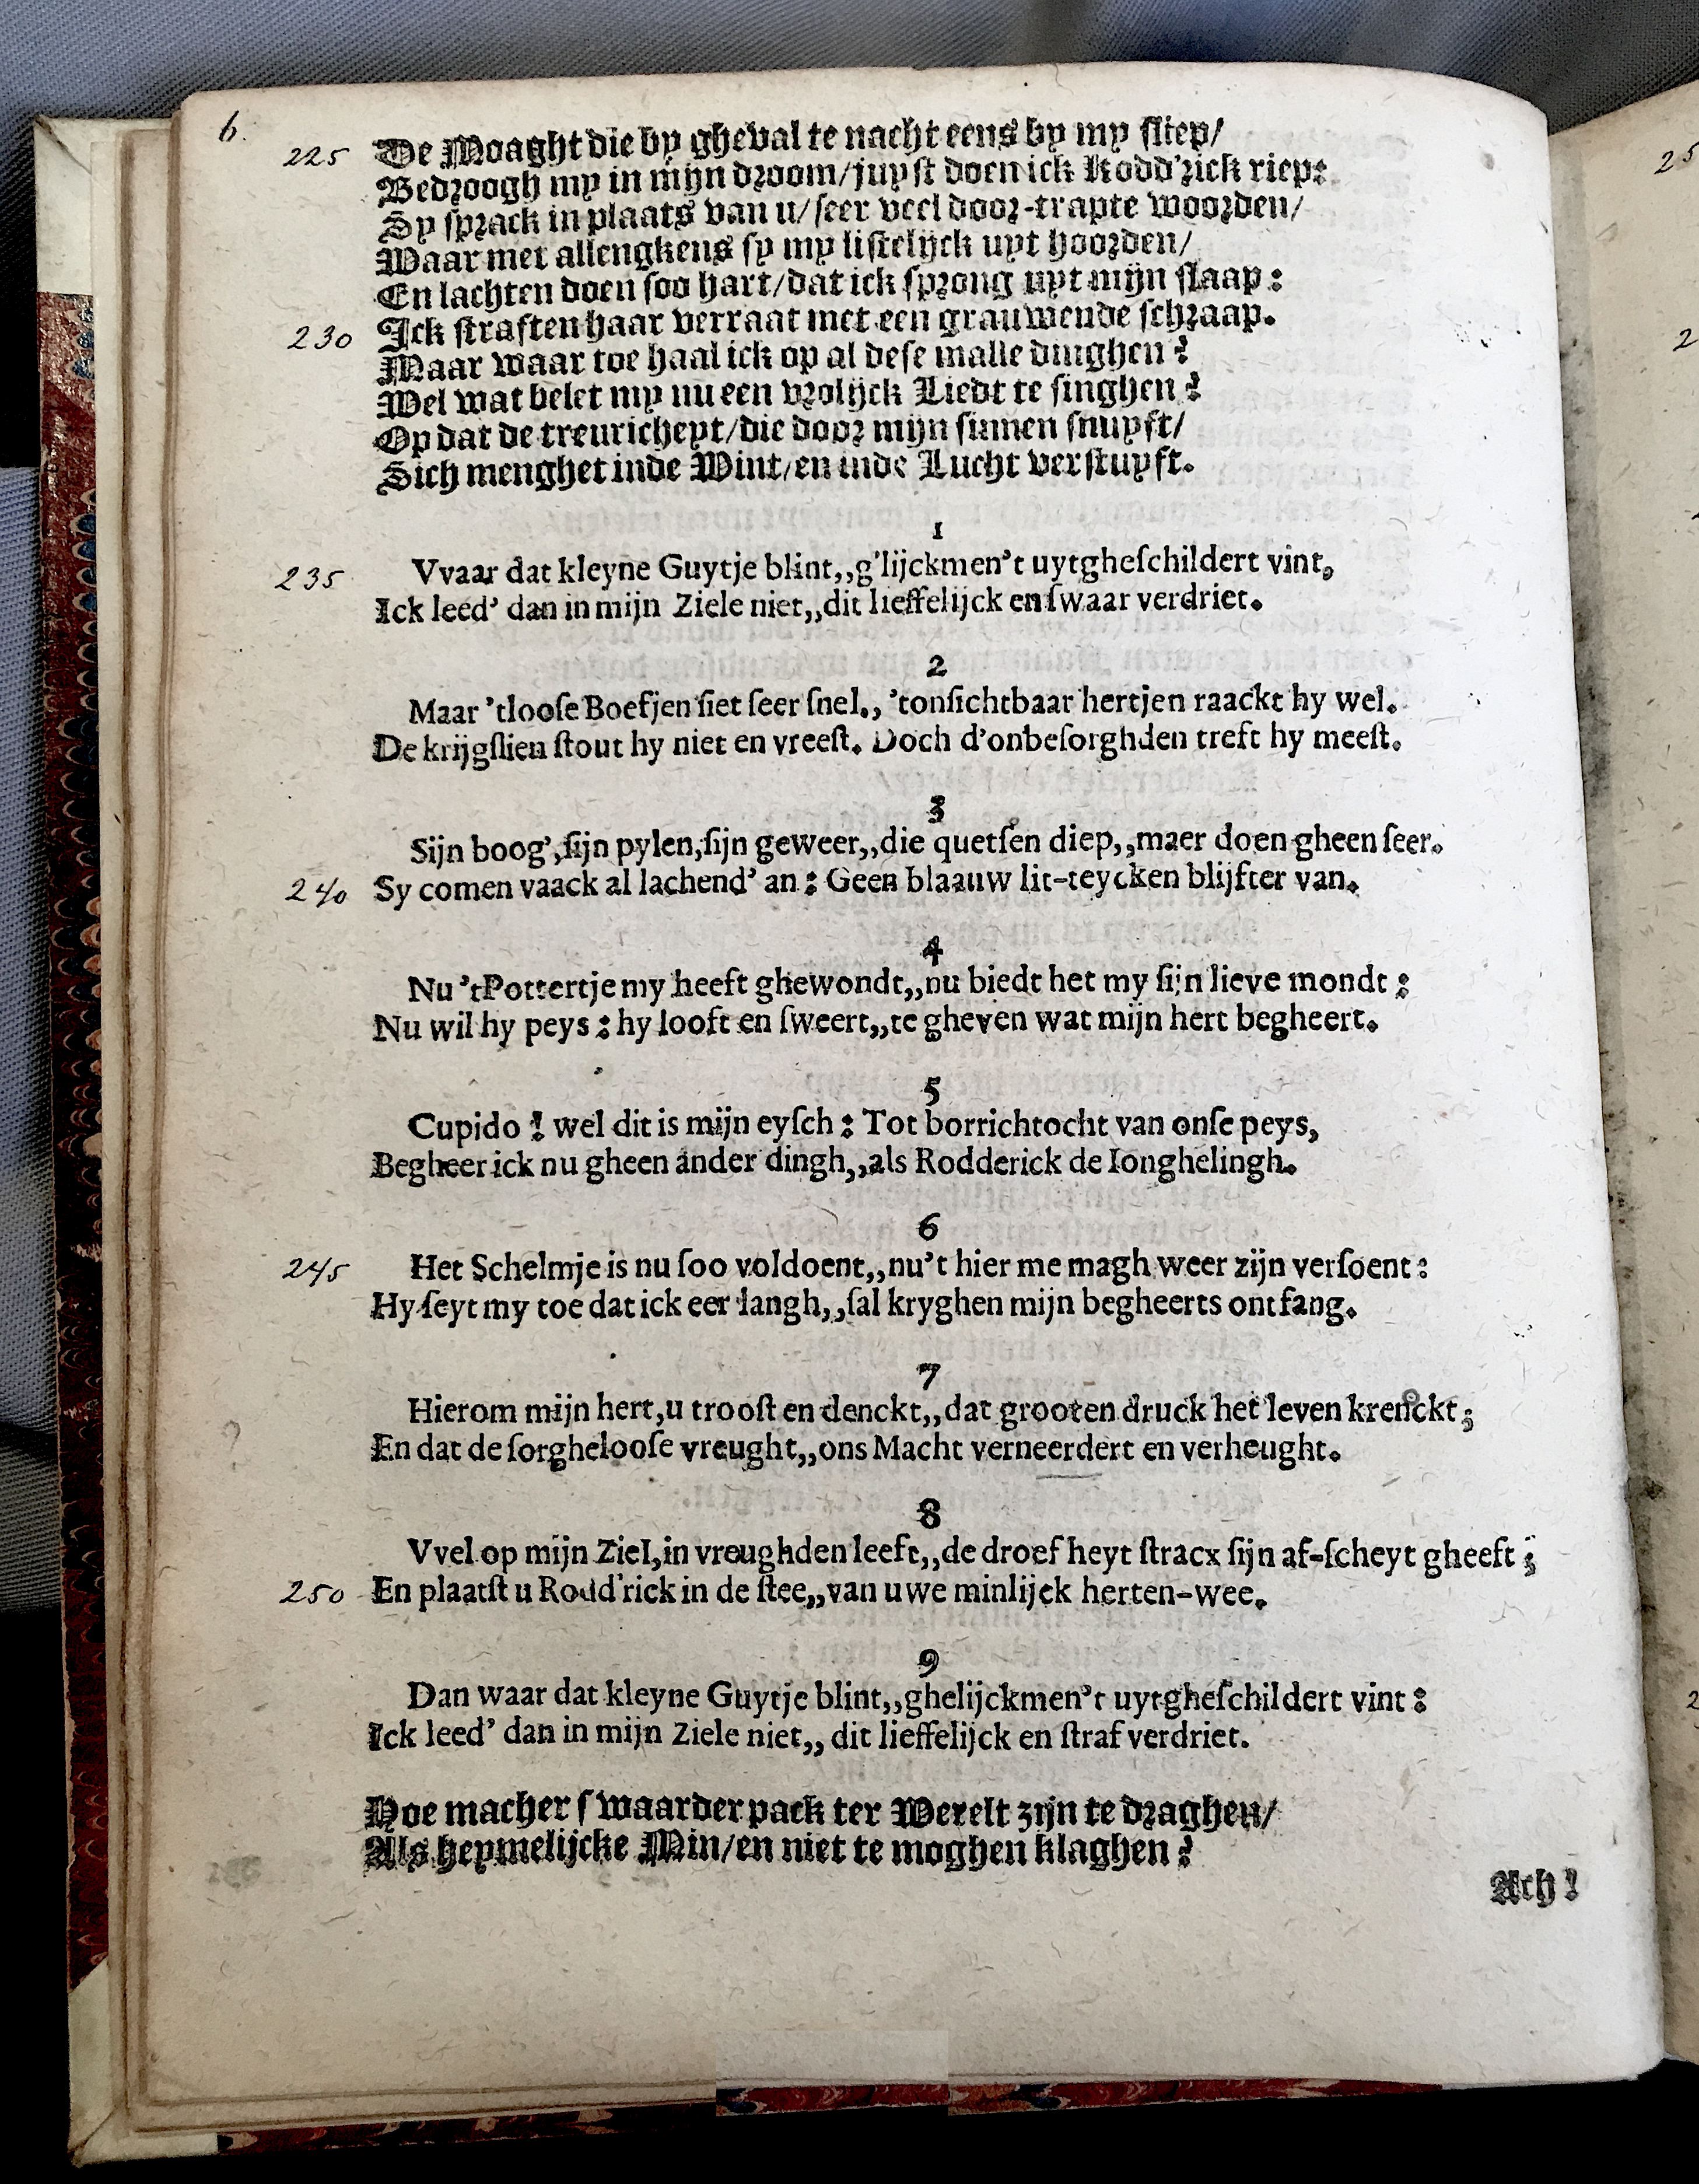 6.
225 De Moaght die by gheval te nacht eens by my sliep/
Bedroogh my in mijn droom/juyst doen ick Rodd'rick riep:
Sy sprack in plaats van u/seer veel door-trapte woorden/
Waar met allengkens sy my listelijck uyt hoorden/
En lachten doen soo hart/dat ick sprong uyt mijn slaap:
230 Ick straften haar verraat met een grauwende schraap.
Maar waar toe haal ick op al dese malle dinghen?
Wel wat belet my nu een vrolijck Liedt te singhen?
Op dat de treuricheyt/die door mijn sinnen snuyft/
Sich menghet inde Wint/en inde Lucht verstuyft.
1
235 Vvaar dat kleyne Guytje blint,,g'lijckmen't uytgheſchildert vint,
Ick leed' dan in mijn Ziele niet,,dit lieffelijck en ſwaar verdriet.
2
Maar 'tlooſe Boefjen ſiet ſeer ſnel,, 'tonſichtbaar hertjen raackt hy wel.
De krijgſlien ſtout hy niet en vreeſt. Doch d'onbeſorghden treft hy meeſt.
3
Sijn boog',ſijn pylen,ſijn geweer,,die quetſen diep,,maer doen gheen ſeer.
240 Sy comen vaack al lachend' an: Geen blaauw lit-teycken blijfter van.
4
Nu 'tPottertje my heeft ghewondt,,nu biedt het my ſijn lieve mondt:
Nu wil hy peys: hy looft en ſweert,,te gheven wat mijn hert begheert.
5
Cupido! wel dit is mijn eyſch: Tot borrichtocht van onſe peys,
Begheer ick nu gheen ander dingh,,als Rodderick de Ionghelingh.
6
245 Het Schelmje is nu ſoo voldoent,,nu't hier me magh weer zijn verſoent:
Hy ſeyt my toe dat ick eer langh,,ſal kryghen mijn begheerts ontfang.
7
Hierom mijn hert,u trooſt en denckt,,dat grooten druck het leven krenckt;
En dat de ſorghelooſe vreught,,ons Macht verneerdert en verheught.
8
Vvel op mijn Ziel,in vreughden leeft,,de droefheyt ſtracx ſijn af-ſcheyt gheeft;
250 En plaatſt u Rodd'rick in de ſtee,,van uwe minlijck herten-wee.
9
Dan waar dat kleyne Guytje blint,,ghelijckmen't uytgheſchildert vint:
Ick leed' dan in mijn Ziele niet,, dit lieffelijck en ſtraf verdriet.
Hoe macher swaarder pack ter Werelt zijn te draghen/
Als heymelijcke Min/en niet te moghen klaghen?
Ach!